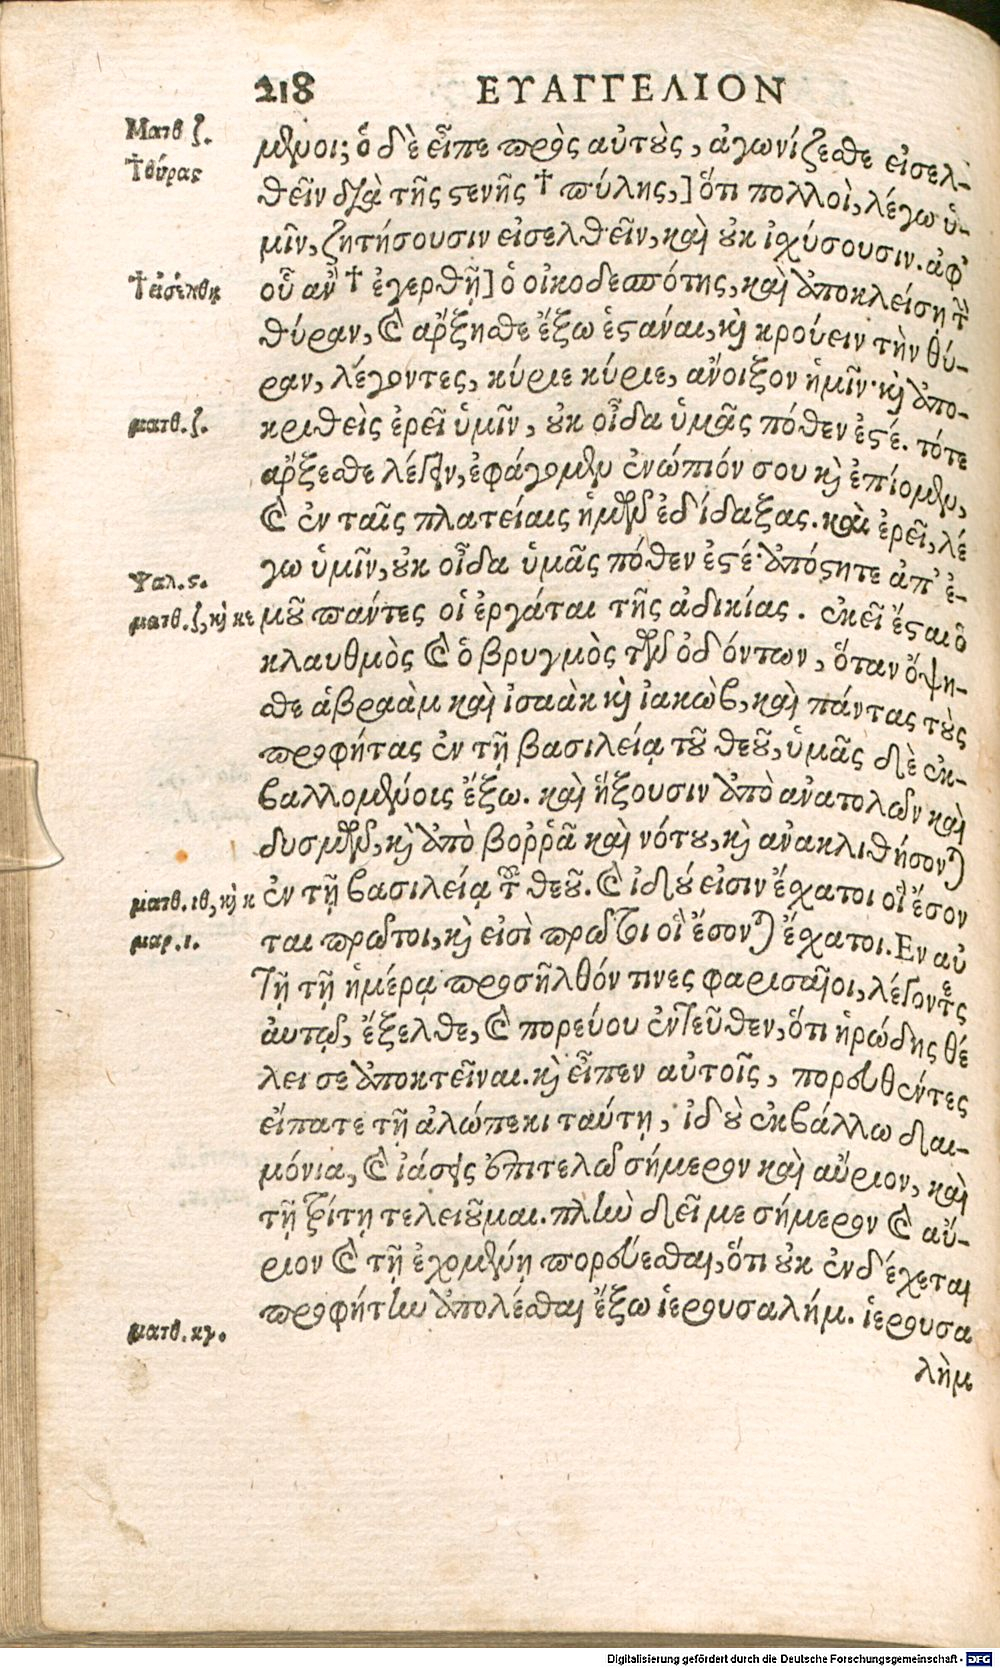 218 ΕΥΑΓΓΕΛΙΟΝ
Ματθ ζ.
†θύρας
μενοι; ὁ δὲ εἶπε πρὸς αὐτοὺς, ἀγωνίζεσθε εἰσελ-
θεῖν διὰ τῆς στενῆς † πύλης,] ὅτι πολλοὶ, λέγω ὑ-
μῖν, ζητήσουσιν εἰσελθεῖν, καὶ οὐκ ἰσχύσουσιν. ἀφ'
†εἰσέλθῃ
οὗ ἂν † ἐγερθῇ] ὁ οἰκοδεσπότης, καὶ ἀποκλείσῃ τὴν
θύραν, καὶ ἄρξησθε ἔξω ἑστάναι, καὶ κρούειν τὴν θύ-
ραν, λέγοντες, κύριε κύριε, ἄνοιξον ἡμῖν· καὶ ἀπο-
ματθ. ζ.
κριθεὶς ἐρεῖ ὑμῖν, οὐκ οἶδα ὑμᾶς πόθεν ἐστέ. τότε
ἄρξεσθε λέγειν, ἐφάγομεν ἐνώπιόν σου καὶ ἐπίομεν,
καὶ ἐν ταῖς πλατείαις ἡμῶν ἐδίδαξας. καὶ ἐρεῖ, λέ
γω ὑμῖν, οὐκ οἶδα ὑμᾶς πόθεν ἐστέ· ἀπόστητε ἀπ' ἐ-
Ψαλ. ς.
ματθ. ζ, καὶ κε
μοῦ πάντες οἱ ἐργάται τῆς ἀδικίας. ἐκεῖ ἔσται ὁ
κλαυθμὸς καὶ ὁ βρυγμὸς τῶν ὀδόντων, ὅταν ὄψη-
σθε ἁβραὰμ καὶ ἰσαὰκ καὶ ἰακὼβ, καὶ πάντας τοὺς
προφήτας ἐν τῇ βασιλείᾳ τοῦ θεοῦ, ὑμᾶς δὲ ἐκ-
βαλλομένοις ἔξω. καὶ ἥξουσιν ἀπὸ ἀνατολῶν καὶ
δυσμῶν, καὶ ἀπὸ βορῤᾶ καὶ νότου, καὶ ἀνακλιθήσονται
ματθ. ιθ, καὶ κ
ἐν τῇ βασιλείᾳ τοῦ θεοῦ. καὶ ἰδού εἰσιν ἔσχατοι οἳ ἔσον
μαρ. ι.
ται πρῶτοι, καὶ εἰσὶ πρῶτοι οἳ ἔσονται ἔσχατοι. Εν αὐ
τῇ τῇ ἡμέρᾳ προσῆλθόν τινες φαρισαῖοι, λέγοντες
ἀυτῷ, ἔξελθε, καὶ πορεύου ἐντεῦθεν, ὅτι ἡρώδης θέ
λει σε ἀποκτεῖναι. καὶ εἶπεν αὐτοῖς, πορευθέντες
εἴπατε τῇ ἀλώπεκι ταύτῃ, ἰδοὺ ἐκβάλλω δαι-
μόνια, καὶ ἰάσεις ἐπιτελῶ σήμερον καὶ αὔριον, καὶ
τῇ τρίτῃ τελειοῦμαι. πλὴν δεῖ με σήμερον καὶ αὔ-
ριον καὶ τῇ ἐχομένῃ πορεύεσθαι, ὅτι οὐκ ἐνδέχεται
προφήτην ἀπολέσθαι ἔξω ἱερουσαλήμ. ἱερουσα
ματθ. κγ.
λὴμ
Digitalisierung gefördert durch die Deutsche Forschungsgemeinschaft - DFG